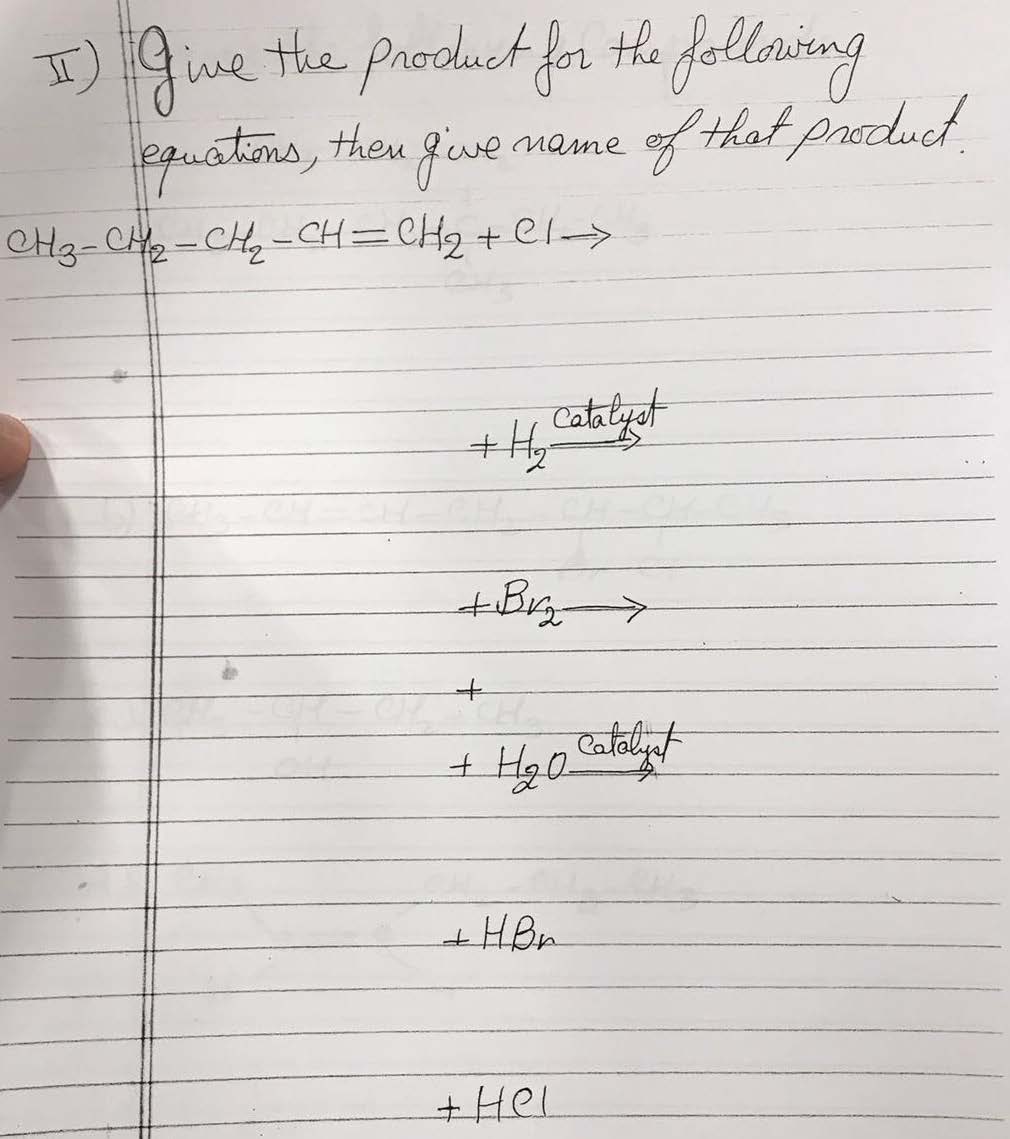 II) Give the product for the following
equations, then give name of that product.
CH₃-CH₂-CH₂-CH=CH₂ + Cl→
Catalyst
+ H₂ →
+ Br₂ →
+
Catalyst
+ H₂O →
+ HBr
+ HCl